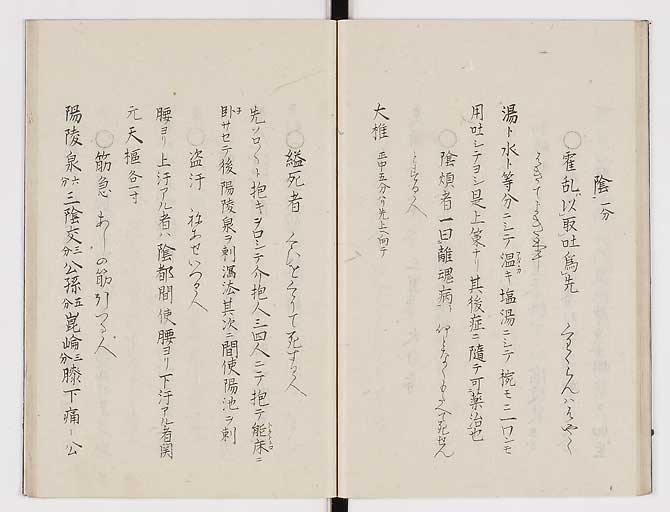 陰一分
○霍乱以取吐為先
湯ト水ト等分ニシテ温キ塩湯ニシテ椀モニ
用吐シテヨシ是上策ナリ其後症ニ隨テ可薬治也
○陰煩者一曰離魂病
大椎
○縊死者 くびくくりて死する人
先ソロ〱ト抱キヲロシテ介抱人三四人ニテ抱テ能床ニ
臥サセテ後陽陵泉ヲ刺瀉法其次ニ間使陽池ヲ刺
○盗汗 ねあせいづる人
腰ヨリ上汗アル者ハ陰都間使腰ヨリ下汗アル者関
元天樞各一寸
○筋急 あしの筋引つる人
陽陵泉六分三陰交三分公孫五分崑崙三分膝下痛ニ公